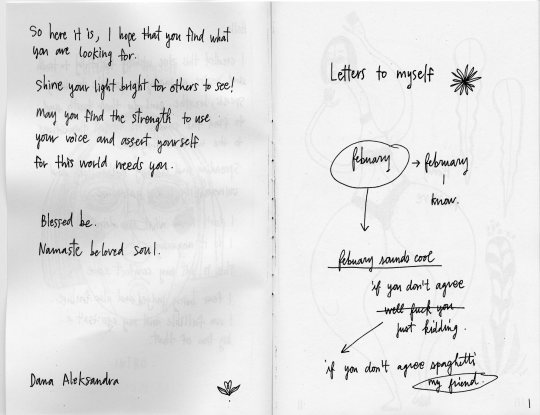 So here it is, I hope that you find what
you are looking for.
Shine your light bright for others to see!
May you find the strength to use
your voice and assert yourself
for this world needs you.
Blessed be.
Namaste beloved soul.
Dana Aleksandra
Letters to myself
febuary → febuary
I
know.
febuary sounds cool
if you don't agree
well fuck you
just kidding.
if you don't agree spaghetti
my friend.
1